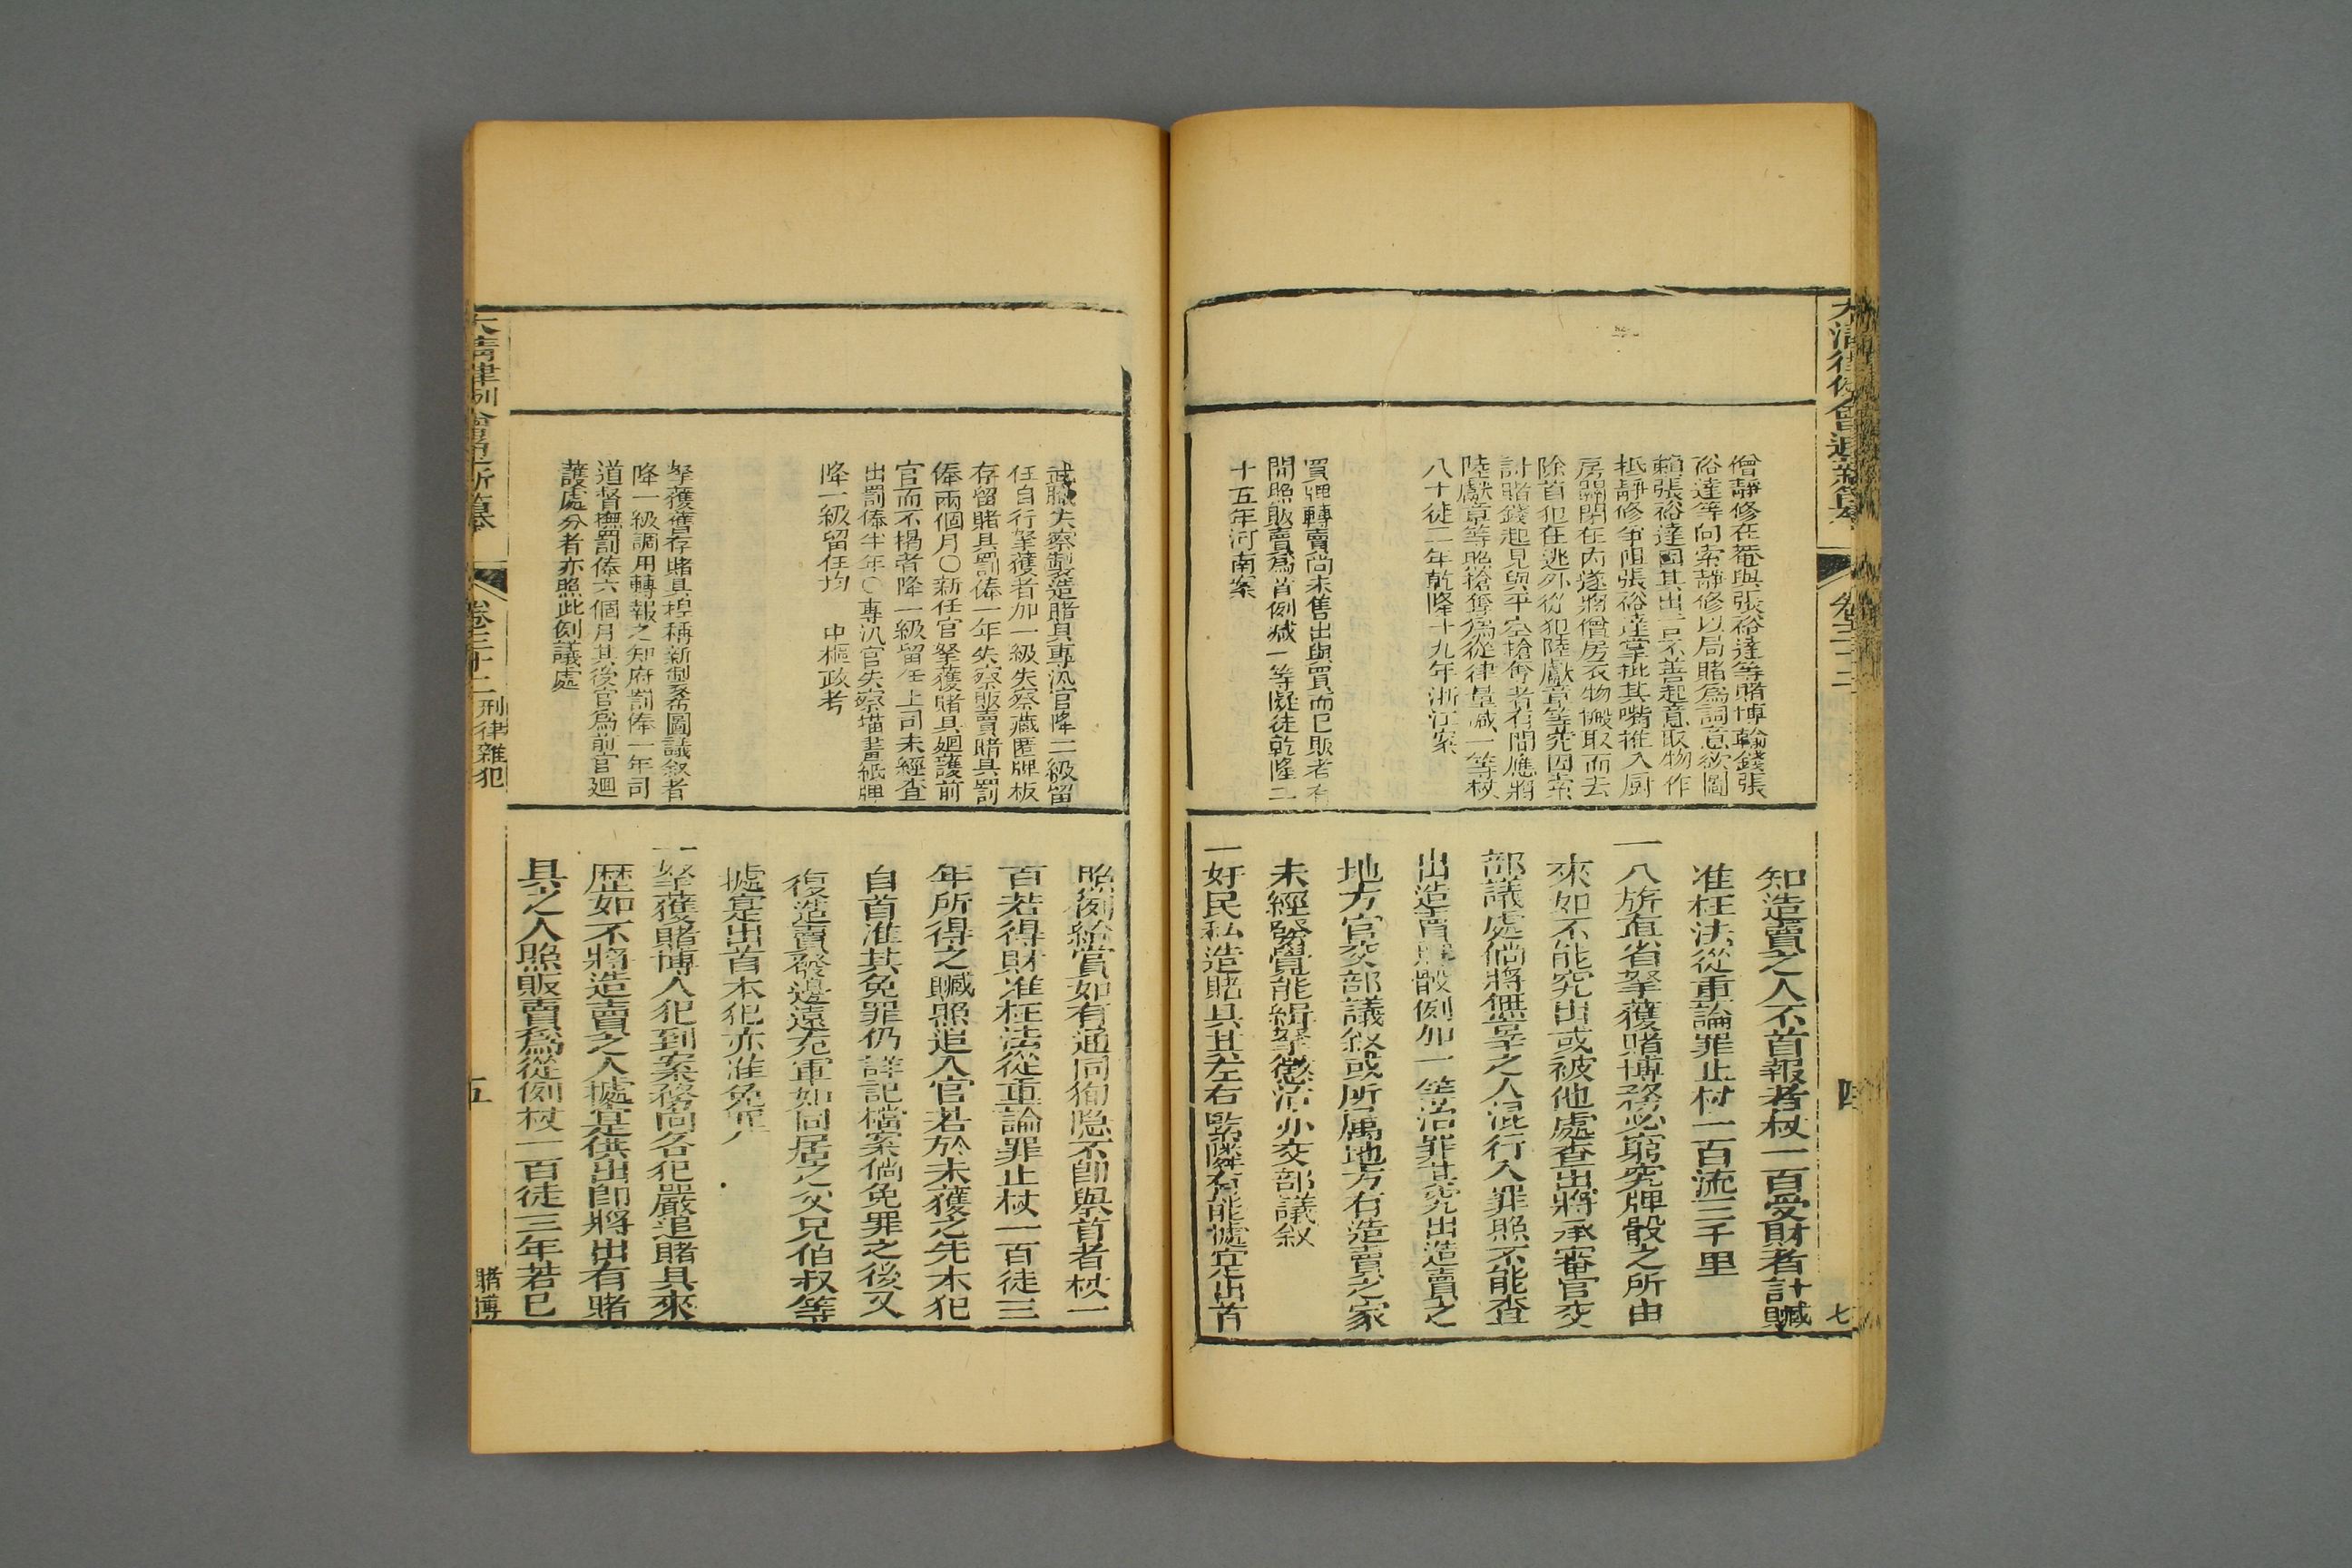 大清律例會通新纂
卷三十二
七
僧靜修在菴與張裕達等賭博輸錢張
裕達等向索靜修以局賭爲詞意欲圖
賴張裕達因其出言不善起意取物作
抵靜修爭阻張裕達掌批其嘴推入厨
房關閉在內遂將僧房衣物搬取而去
除首犯在逃外從犯陸獻章等究因索
討賭錢起見與平空搶奪者有間應將
陸獻章等照搶奪爲從律量減一等杖
八十徒二年乾隆十九年浙江案
買牌轉賣尚未售出與買而已販者有
間照販賣爲首例減一等擬徒乾隆二
十五年河南案
知造賣之人不首報者杖一百受財者計贓
准枉法從重論罪止杖一百流三千里
一八旂直省拏獲賭博務必窮究牌骰之所由
來如不能究出或被他處查出將承審官交
部議處倘將無辜之人混行入罪照不能查
出造賣牌骰例加一等治罪其究出造賣之
地方官交部議敘或所属地方有造賣之家
未經發覺能緝拏懲治亦交部議敘
一奸民私造賭具其左右緊隣有能據寔出首
武職失察製造賭具專汛官降二級留
任自行拏獲者加一級失察藏匿牌板
存留賭具罰俸一年失察販賣賭具罰
俸兩個月〇新任官拏獲賭具廻護前
官而不揭者降一級留任上司未經查
出罰俸半年〇專汛官失察描畫紙牌
降一級留任均 中樞政考
拏獲舊存賭具捏稱新製希圖議敘者
降一級調用轉報之知府罰俸一年司
道督撫罰俸六個月其後官爲前官廻
護處分者亦照此例議處
照例給賞如有通同狥隐不即舉首者杖一
百若得財准枉法從重論罪止杖一百徒三
年所得之贓照追入官若於未獲之先本犯
自首准其免罪仍詳記檔案倘免罪之後又
復造賣發邊遠充軍如同居之父兄伯叔等
據寔出首本犯亦准免罪
一拏獲賭博人犯到案務向各犯嚴追賭具來
歷如不將造賣之人據寔供出即將出有賭
具之人照販賣爲從例杖一百徒三年若已
大清律例會通新纂
卷三十二 刑律雜犯
五
賭博